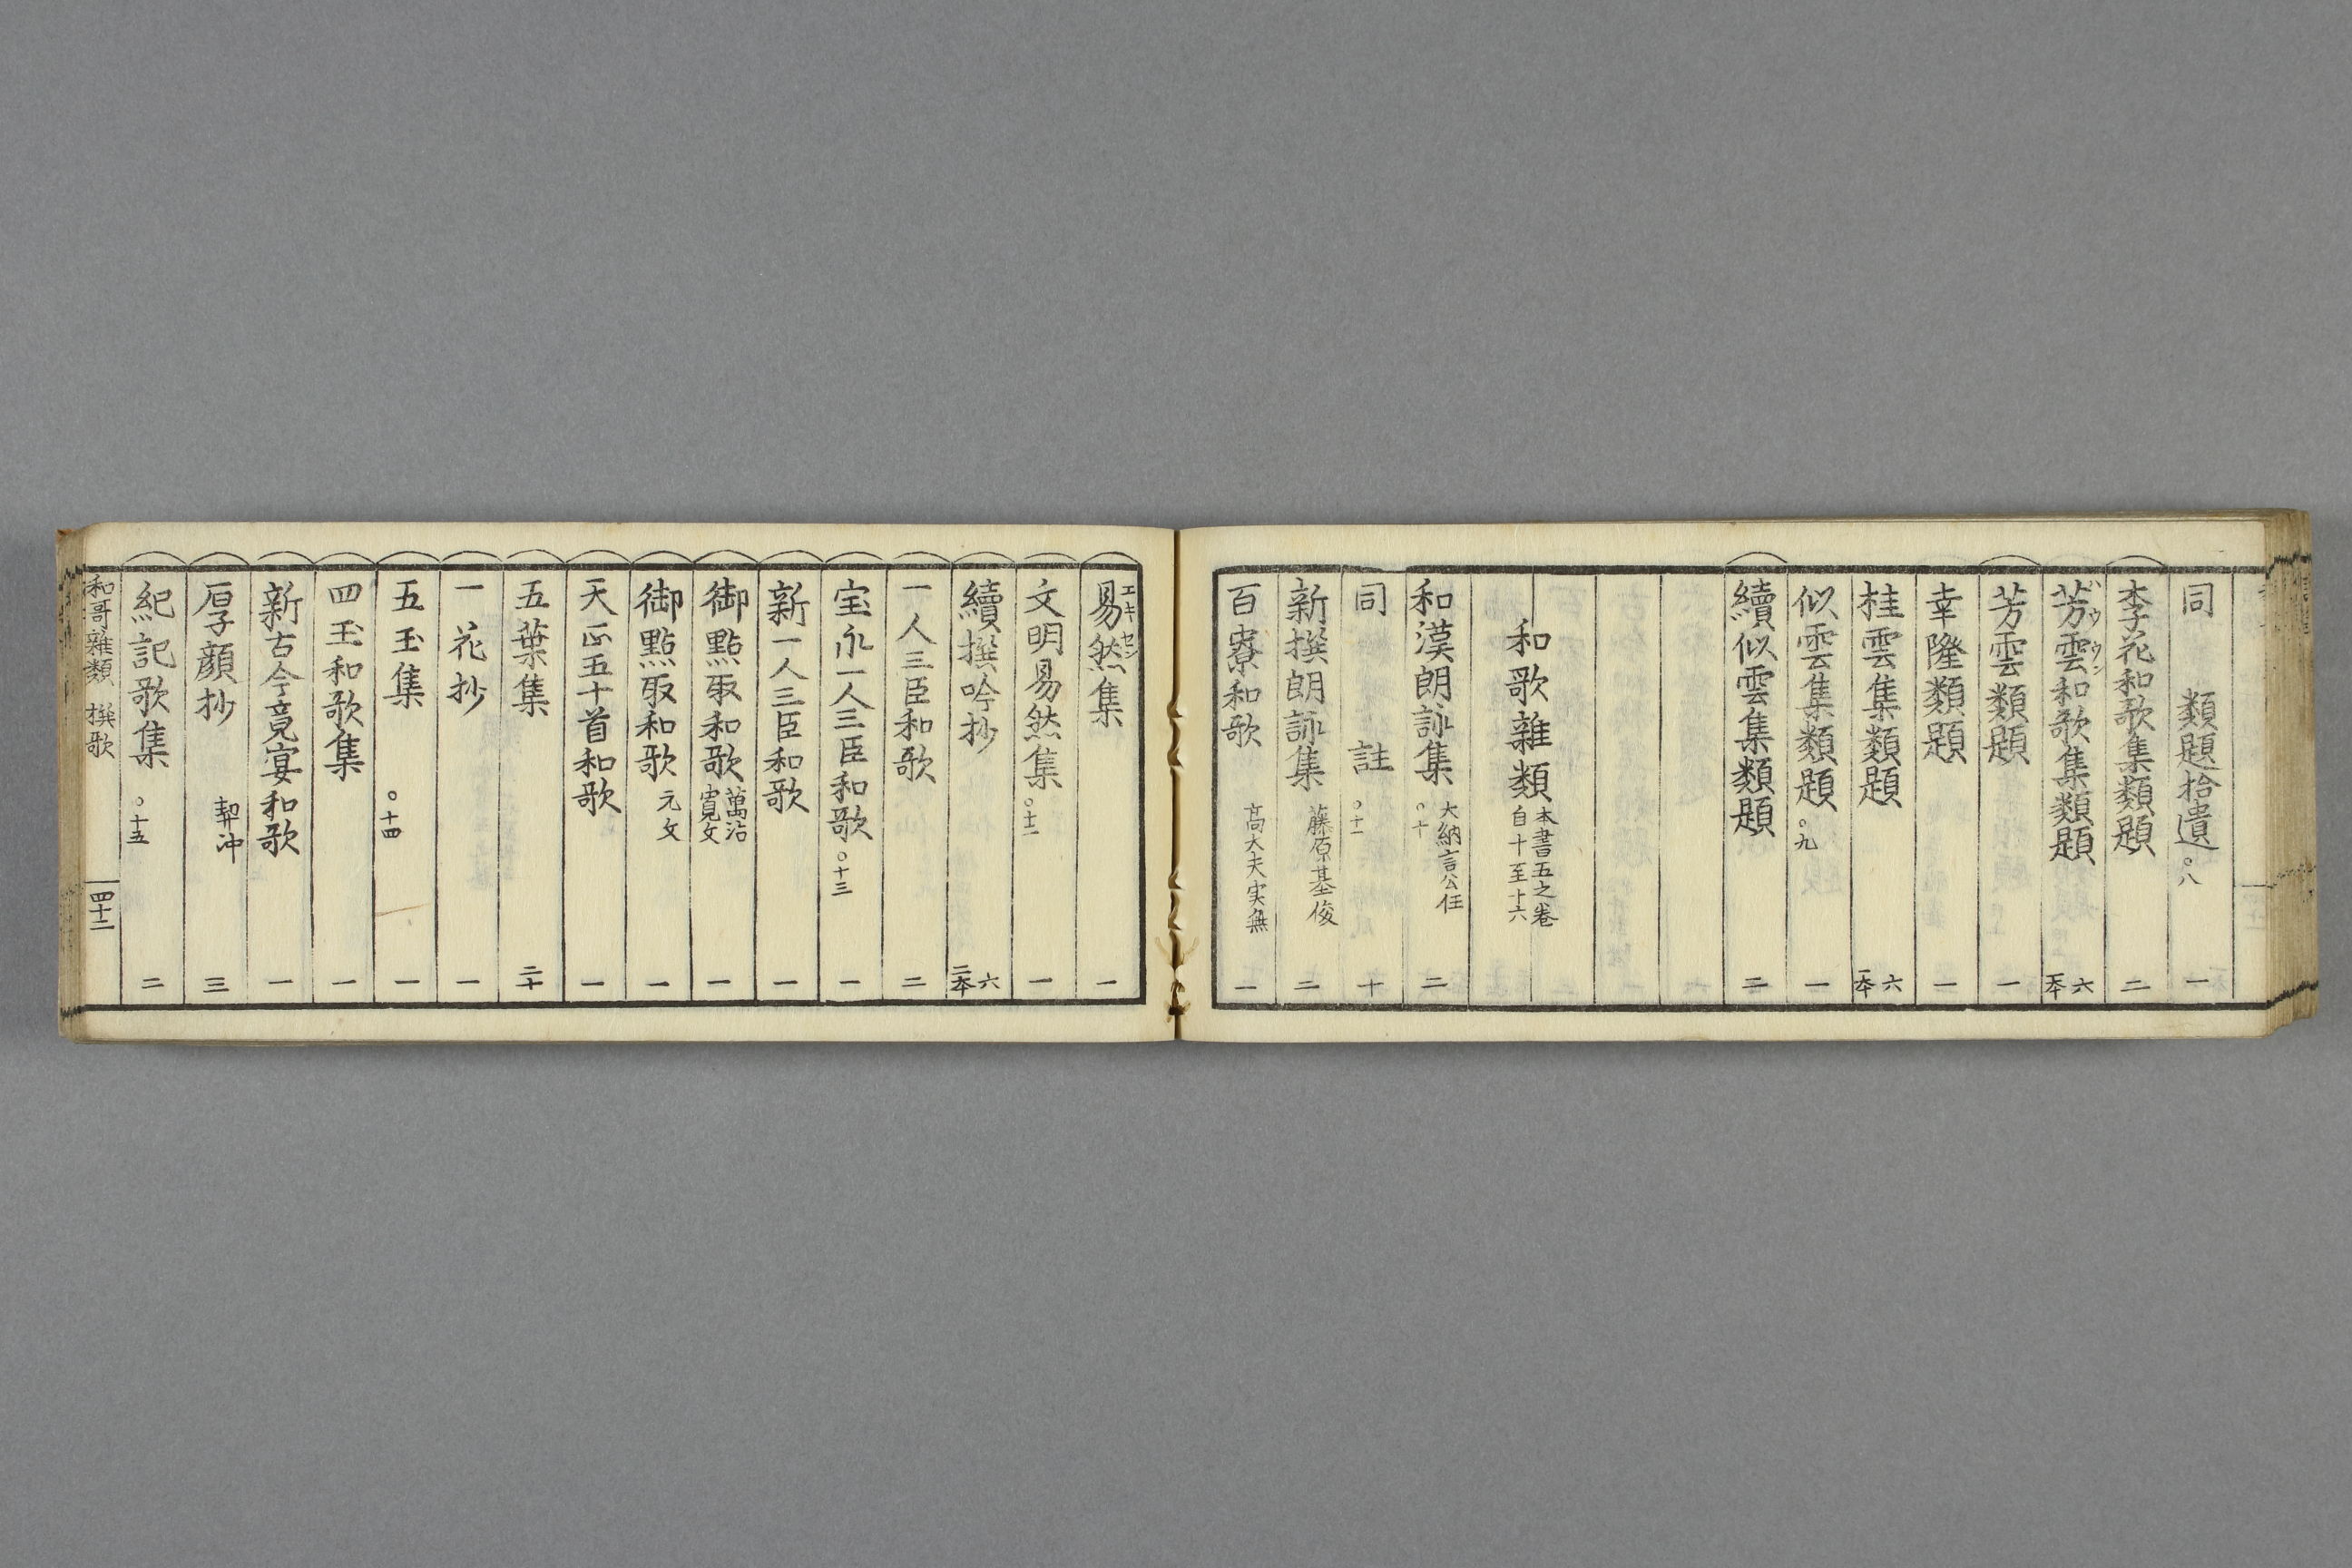 同　類題拾遺　○八　一
李花和歌集類題　二
芳雲和歌集類題　六　一本
芳雲類題　一
幸隆類題　一
桂雲集類題　六　一本
似雲集類題　○九　一
續似雲集類題　二
和歌雜類　本書五之巻　自十至十六
和漢朗詠集　大納言公任　○十　二
同　註　○十一　十
新撰朗詠集　藤原基俊　二
百寮和歌　高大夫実無　一
易然集　エキセン　一
文明易然集　○十二　一
續撰吟抄　六　二本
一人三臣和歌　二
宝永一人三臣和歌　○十三　一
新一人三臣和歌　一
御點取和歌　萬治　寛文　一
御點取和歌　元文　一
天正五十首和歌　一
五葉集　二十
一花抄　一
五玉集　○十四　一
四玉和歌集　一
新古今竟宴和歌　一
厚顔抄　契沖　三
紀記歌集　○十五　二
和哥雜類　撰歌　四十二